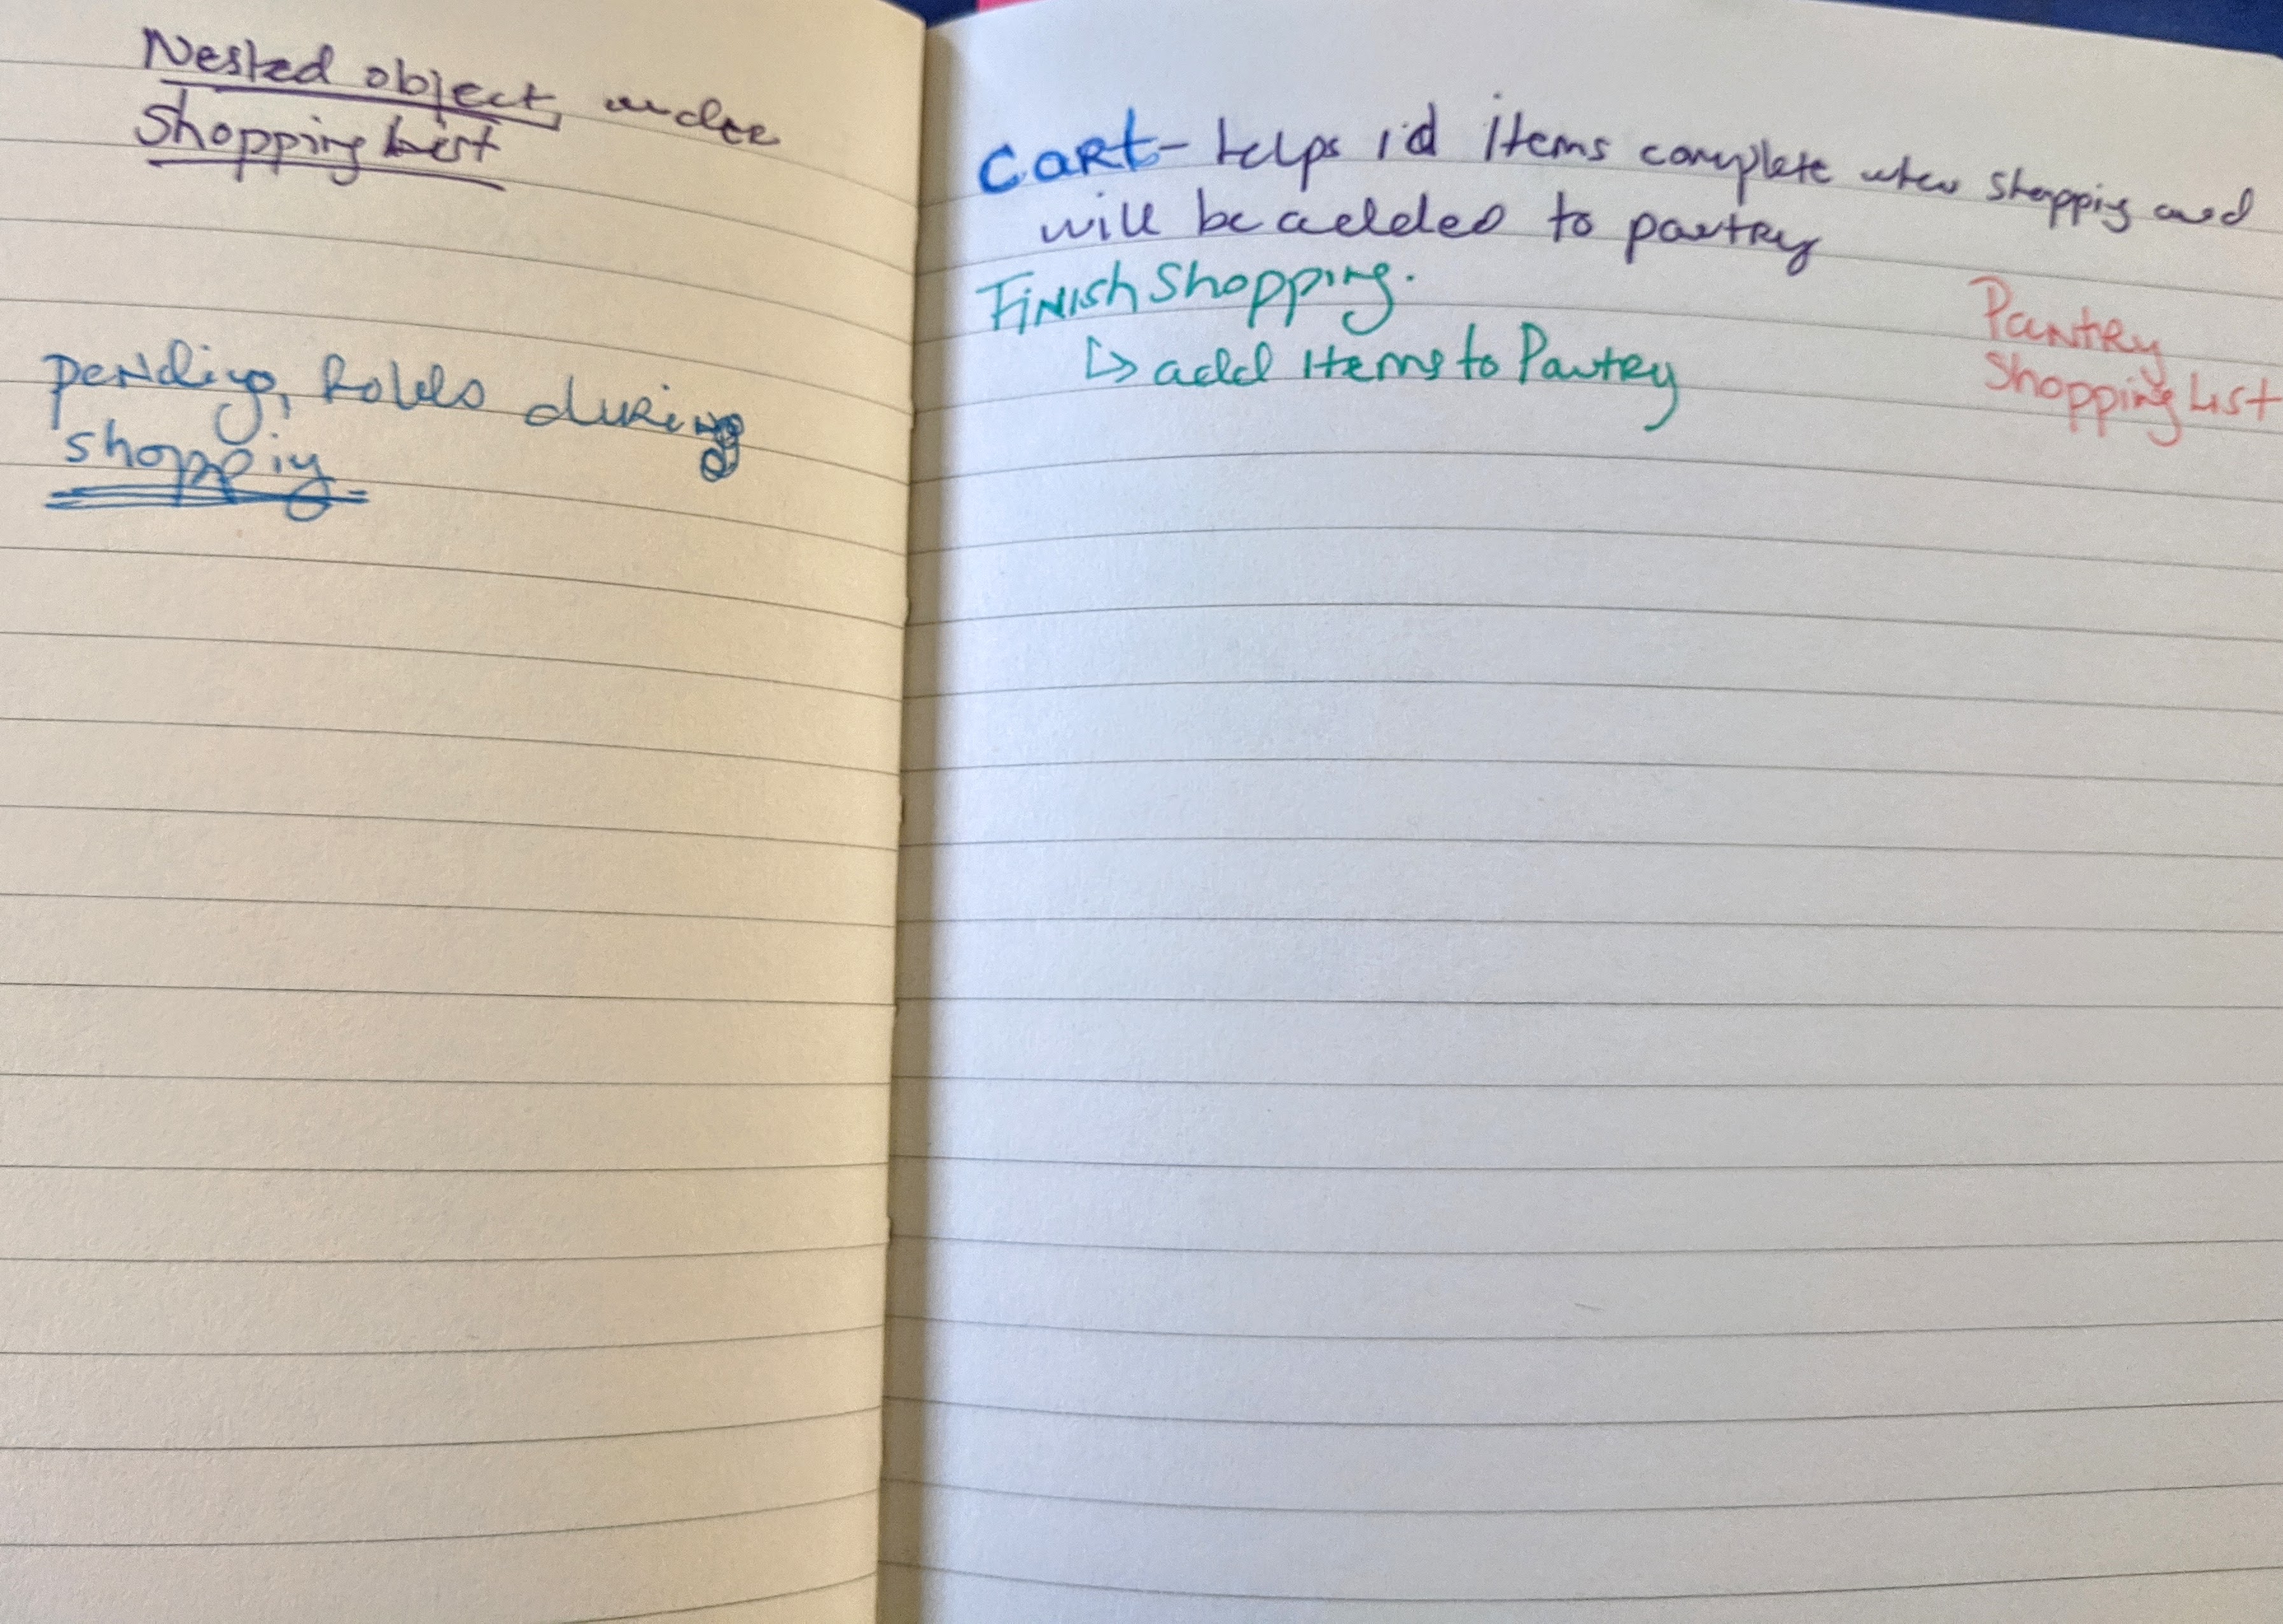 Nested object under
Shopping List
pending, holds during
shopping
Cart - helps id items complete when shopping and
will be added to pantry
Finish Shopping.
↳ add items to Pantry
Pantry
Shopping List